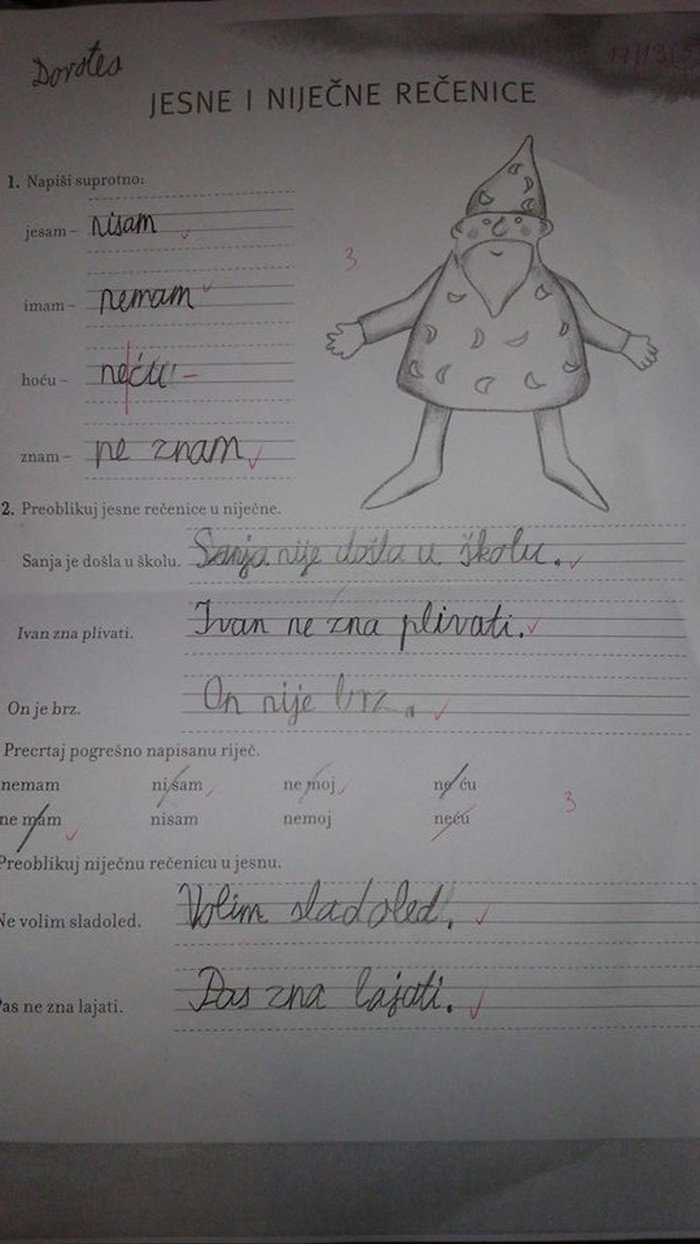 Dorotea
17/19
JESNE I NIJEČNE REČENICE
1. Napiši suprotno:
jesam – nisam
3
imam – nemam
hoću – neću –
znam – ne znam
2. Preoblikuj jesne rečenice u niječne.
Sanja je došla u školu. Sanja nije došla u školu.
Ivan zna plivati. Ivan ne zna plivati.
On je brz. On nije brz.
Precrtaj pogrešno napisanu riječ.
nemam ni sam ne moj ne ću
3
ne mam nisam nemoj neću
Preoblikuj niječnu rečenicu u jesnu.
Ne volim sladoled. Volim sladoled.
Pas ne zna lajati. Pas zna lajati.